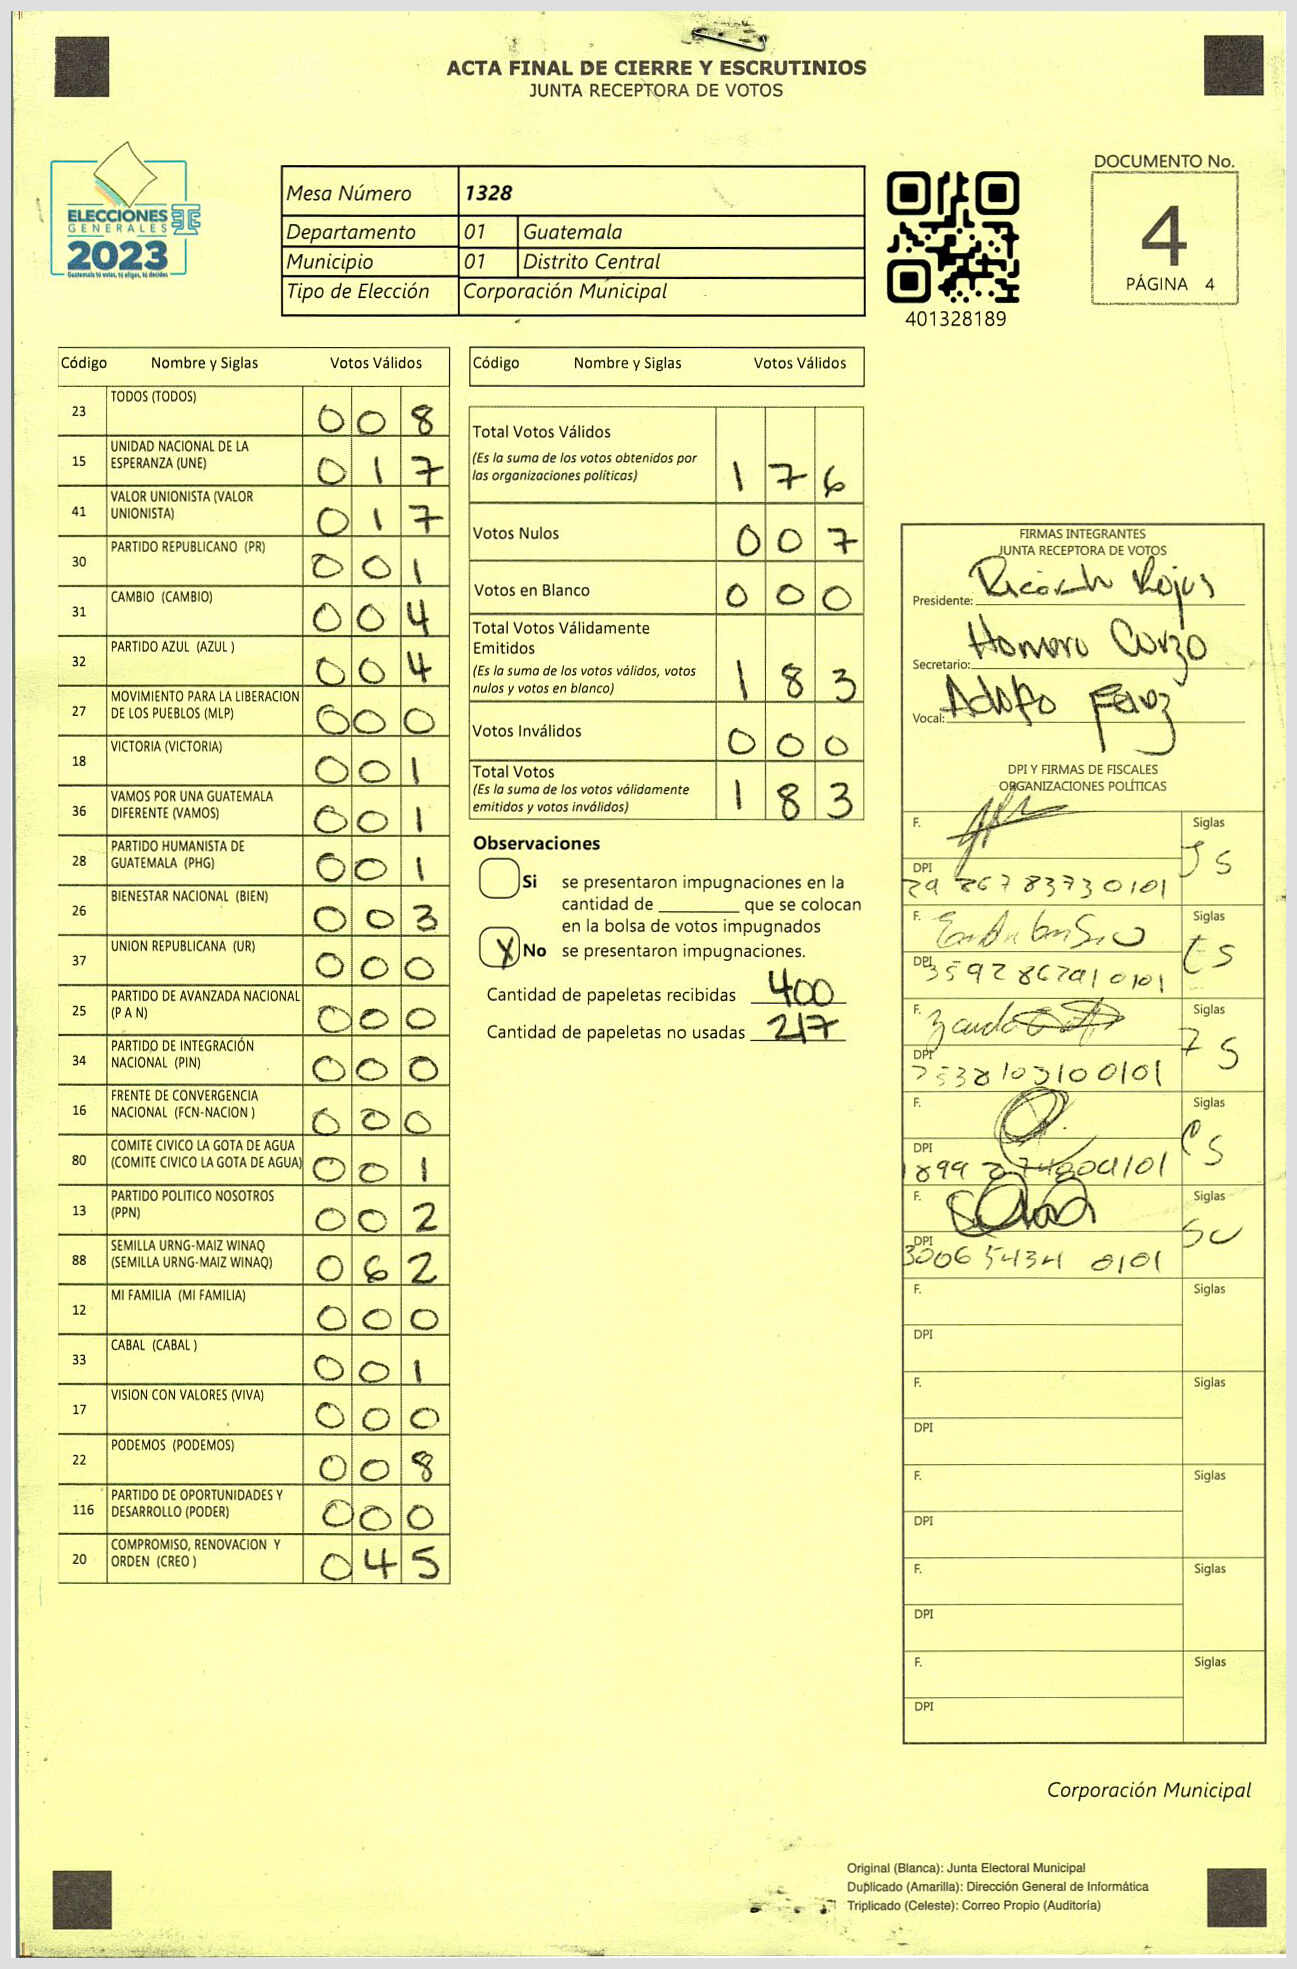 ACTA FINAL DE CIERRE Y ESCRUTINIOS
JUNTA RECEPTORA DE VOTOS
ELECCIONES
GENERALES
2023
Guatemala tú votas, tú eliges, tú decides
Mesa Número 1328
Departamento 01 Guatemala
Municipio 01 Distrito Central
Tipo de Elección Corporación Municipal
401328189
DOCUMENTO No.
4
PÁGINA 4
Código Nombre y Siglas Votos Válidos
23 TODOS (TODOS) 0 0 8
15 UNIDAD NACIONAL DE LA ESPERANZA (UNE) 0 1 7
41 VALOR UNIONISTA (VALOR UNIONISTA) 0 1 7
30 PARTIDO REPUBLICANO (PR) 0 0 1
31 CAMBIO (CAMBIO) 0 0 4
32 PARTIDO AZUL (AZUL ) 0 0 4
27 MOVIMIENTO PARA LA LIBERACION DE LOS PUEBLOS (MLP) 0 0 0
18 VICTORIA (VICTORIA) 0 0 1
36 VAMOS POR UNA GUATEMALA DIFERENTE (VAMOS) 0 0 1
28 PARTIDO HUMANISTA DE GUATEMALA (PHG) 0 0 1
26 BIENESTAR NACIONAL (BIEN) 0 0 3
37 UNION REPUBLICANA (UR) 0 0 0
25 PARTIDO DE AVANZADA NACIONAL (P A N) 0 0 0
34 PARTIDO DE INTEGRACIÓN NACIONAL (PIN) 0 0 0
16 FRENTE DE CONVERGENCIA NACIONAL (FCN-NACION ) 0 0 0
80 COMITE CIVICO LA GOTA DE AGUA (COMITE CIVICO LA GOTA DE AGUA) 0 0 1
13 PARTIDO POLITICO NOSOTROS (PPN) 0 0 2
88 SEMILLA URNG-MAIZ WINAQ (SEMILLA URNG-MAIZ WINAQ) 0 6 2
12 MI FAMILIA (MI FAMILIA) 0 0 0
33 CABAL (CABAL ) 0 0 1
17 VISION CON VALORES (VIVA) 0 0 0
22 PODEMOS (PODEMOS) 0 0 8
116 PARTIDO DE OPORTUNIDADES Y DESARROLLO (PODER) 0 0 0
20 COMPROMISO, RENOVACION Y ORDEN (CREO ) 0 4 5
Código Nombre y Siglas Votos Válidos
Total Votos Válidos 1 7 6
(Es la suma de los votos obtenidos por
las organizaciones políticas)
Votos Nulos 0 0 7
Votos en Blanco 0 0 0
Total Votos Válidamente
Emitidos 1 8 3
(Es la suma de los votos válidos, votos
nulos y votos en blanco)
Votos Inválidos 0 0 0
Total Votos 1 8 3
(Es la suma de los votos válidamente
emitidos y votos inválidos)
Observaciones
Si se presentaron impugnaciones en la
cantidad de ________ que se colocan
en la bolsa de votos impugnados
X No se presentaron impugnaciones.
Cantidad de papeletas recibidas 400
Cantidad de papeletas no usadas 217
FIRMAS INTEGRANTES
JUNTA RECEPTORA DE VOTOS
Presidente: Ricardo Rojas
Secretario: Homero Corzo
Vocal: Adolfo
DPI Y FIRMAS DE FISCALES
ORGANIZACIONES POLÍTICAS
F. Siglas
DPI
F. Siglas
DPI
F. Siglas
DPI
F. Siglas
DPI
F. Siglas
DPI 3006 5434 0101
F. Siglas
DPI
F. Siglas
DPI
F. Siglas
DPI
F. Siglas
DPI
F. Siglas
DPI
Corporación Municipal
Original (Blanca): Junta Electoral Municipal
Duplicado (Amarilla): Dirección General de Informática
Triplicado (Celeste): Correo Propio (Auditoría)